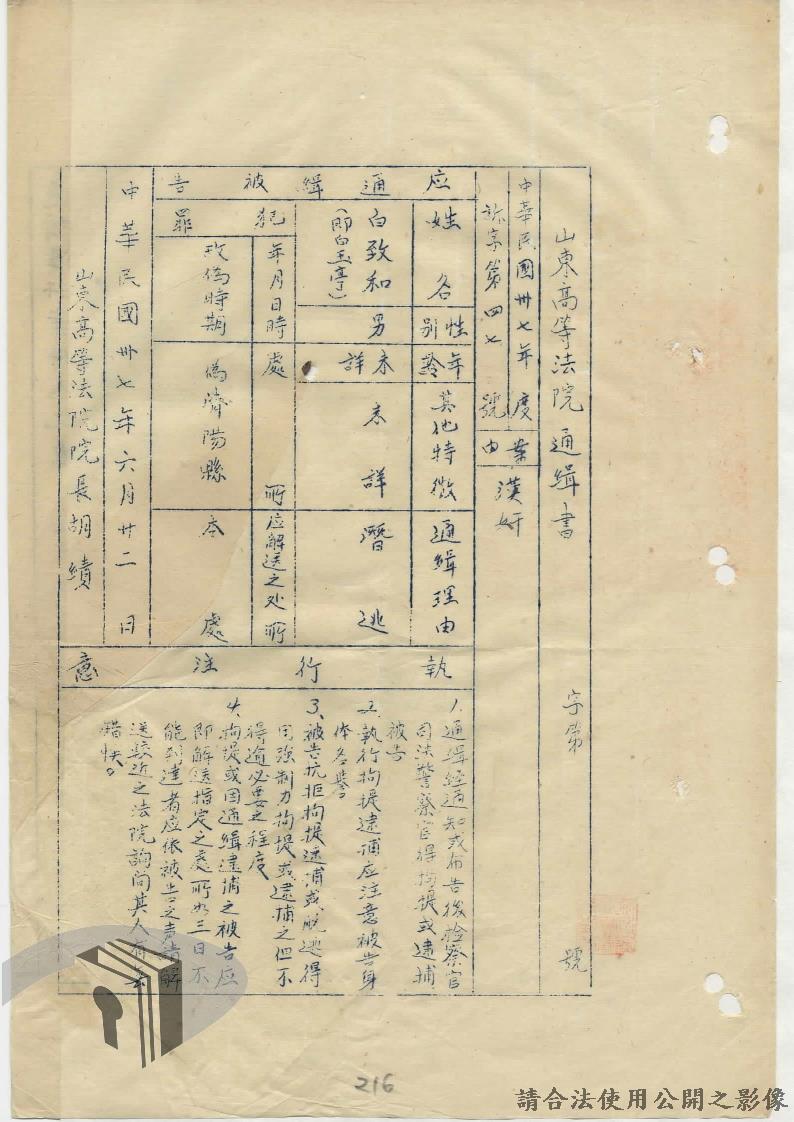 山東高等法院通緝書
字第 號
中華民國卅七年度
訴字第四七號
案由
漢奸
应通緝被告
姓名
性別
年齡
其他特徵
通緝理由
白致和
(即白玉亭)
男
未詳
未詳
潛逃
犯罪
年月日時
處所
应解送之处所
政偽時期
偽濟陽縣
本處
中華民國卅七年六月廿二日
山東高等法院院長胡績
執行注意
1、通緝經通知或布告後檢察官
司法警察官得拘提或逮捕
被告
2、執行拘提逮捕应注意被告身
体名譽
3、被告抗拒拘提逮捕或脫逃得
用強制力拘提或逮捕之但不
得逾必要之程度
4、拘提或因通緝逮捕之被告应
即解送指定之處所如三日不
能到達者应依被告之声請解
送較近之法院詢問其人有無
錯快。
216
請合法使用公開之影像